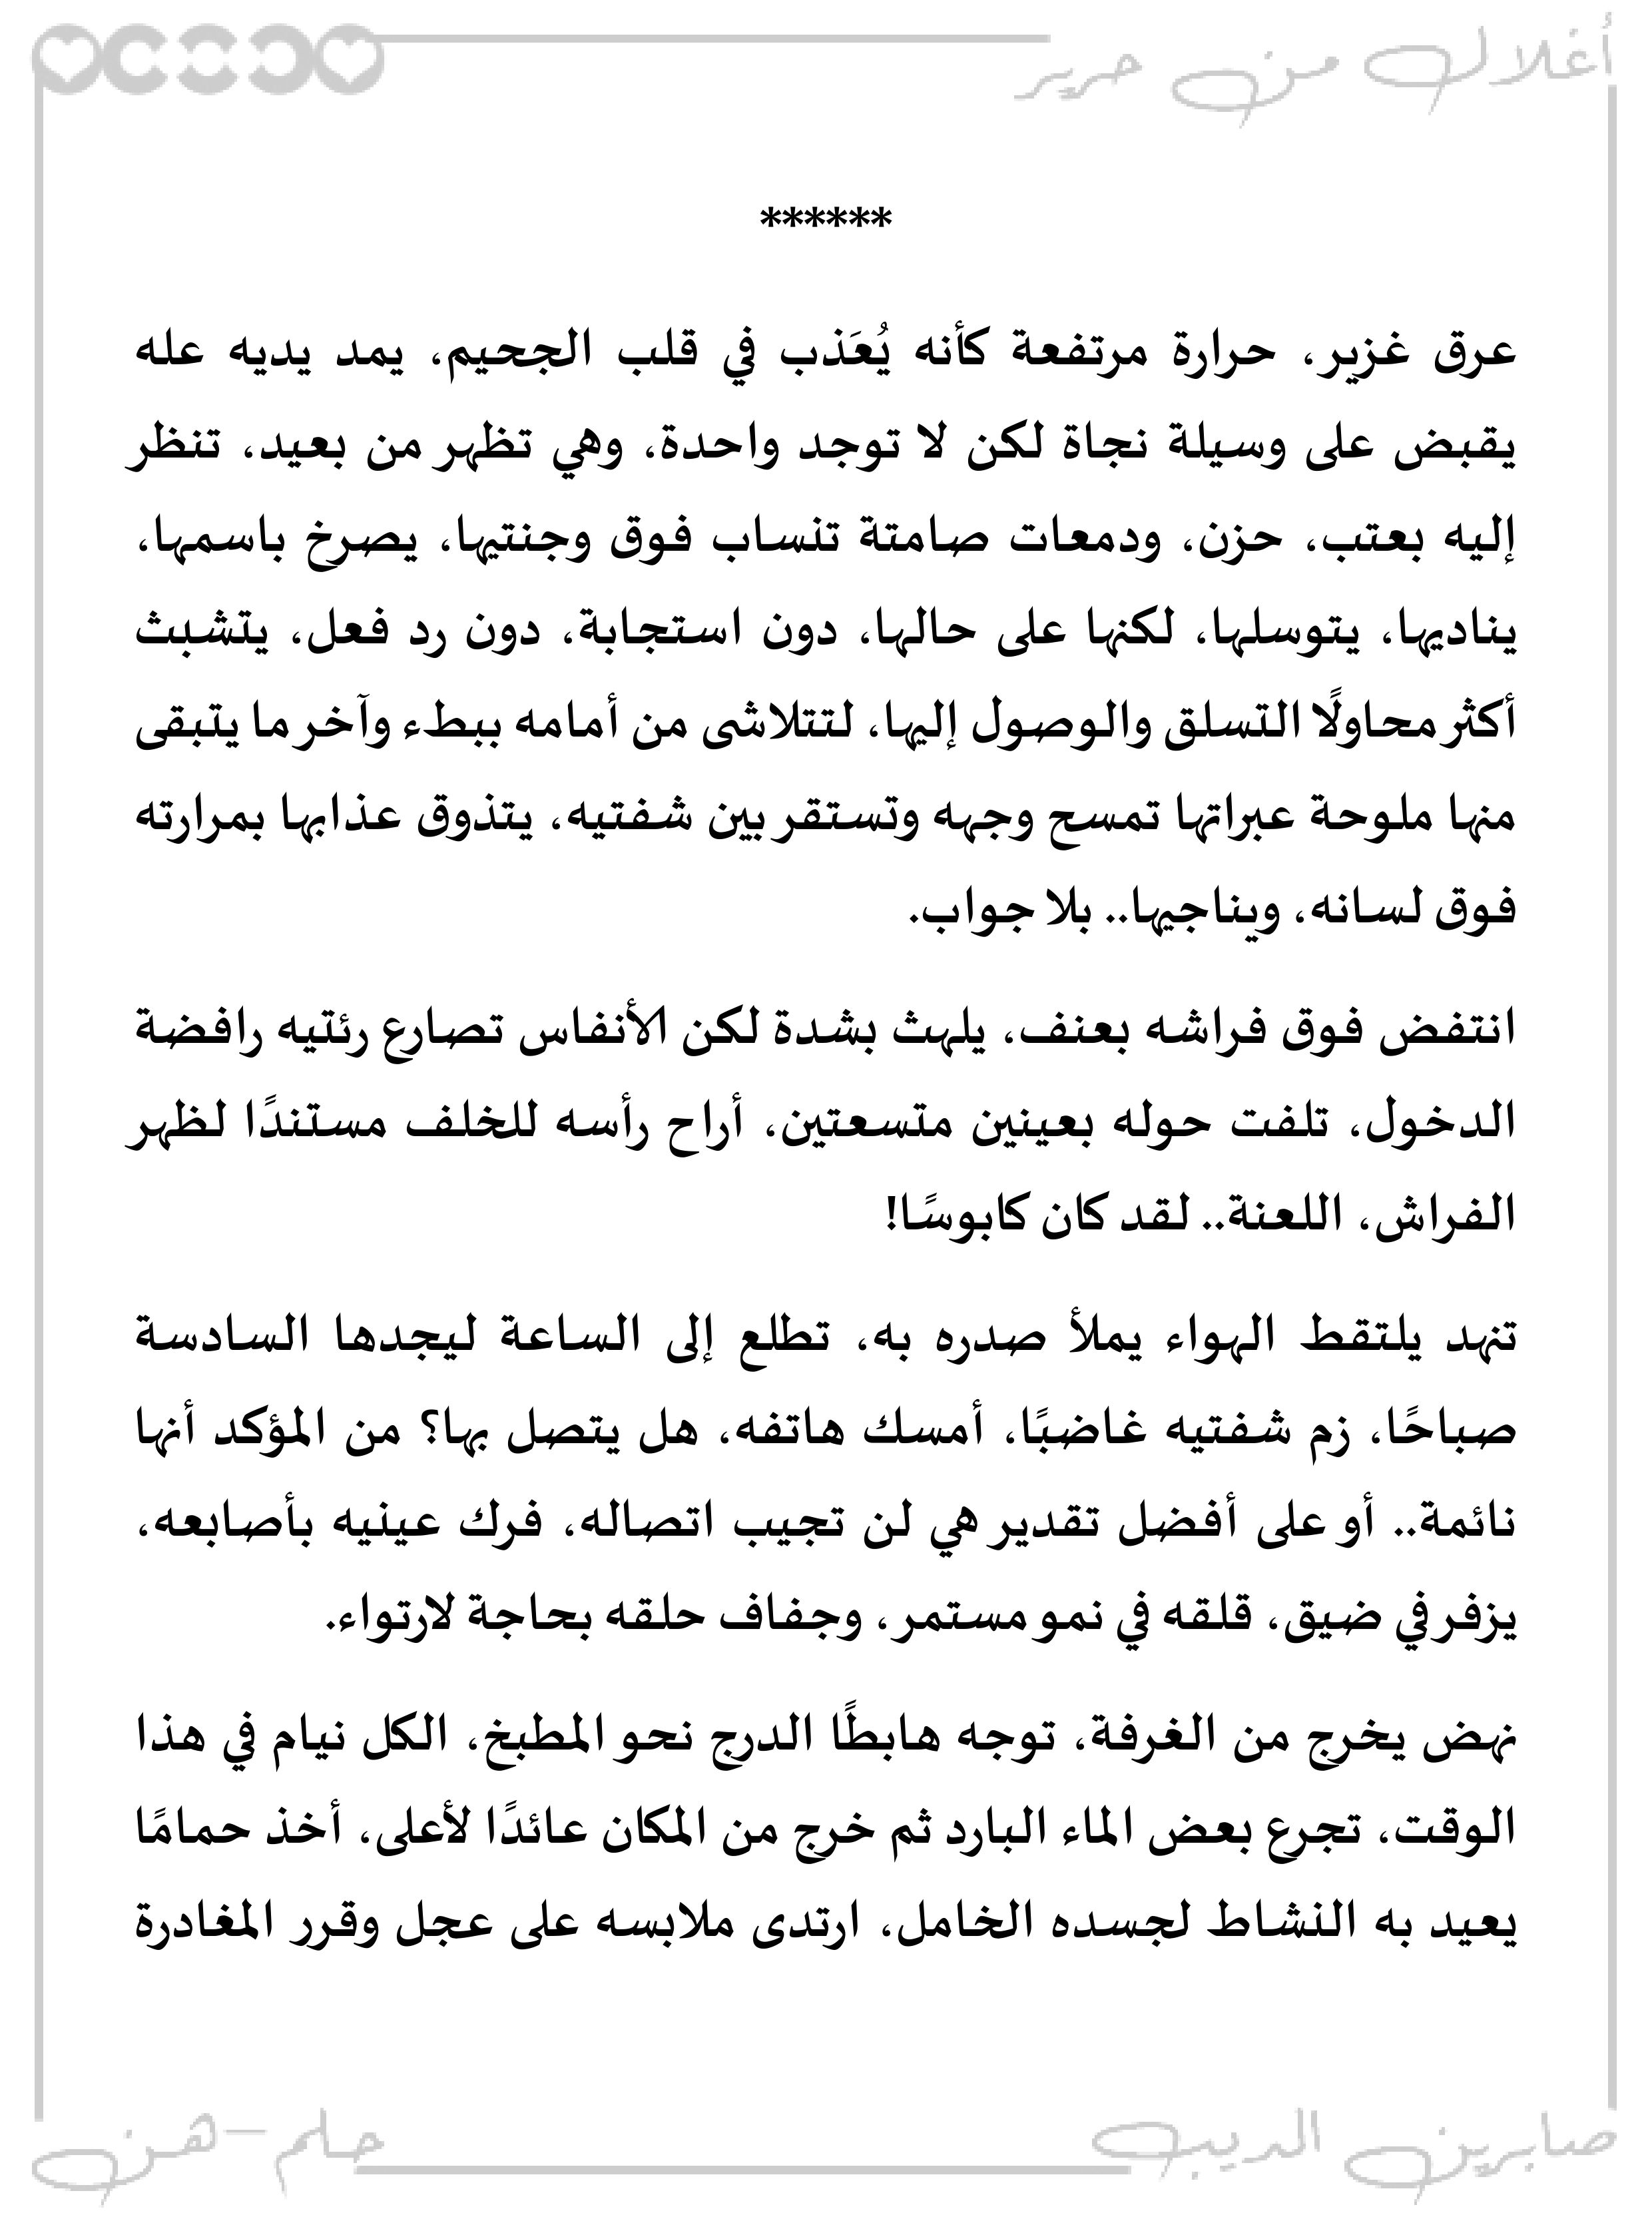 أغلال من حرير
******
عرق غزير، حرارة مرتفعة كأنه يُعَذب في قلب الجحيم، يمد يديه عله
يقبض على وسيلة نجاة لكن لا توجد واحدة، وهي تظهر من بعيد، تنظر
إليه بعتب، حزن، ودمعات صامتة تنساب فوق وجنتيها، يصرخ باسمها،
يناديها، يتوسلها، لكنها على حالها، دون استجابة، دون رد فعل، يتشبث
أكثر محاولًا التسلق والوصول إليها، لتتلاشى من أمامه ببطء وآخر ما يتبقى
منها ملوحة عبراتها تمسح وجهه وتستقر بين شفتيه، يتذوق عذابها بمرارته
فوق لسانه، ويناجيها.. بلا جواب.
انتفض فوق فراشه بعنف، يلهث بشدة لكن الأنفاس تصارع رئتيه رافضة
الدخول، تلفت حوله بعينين متسعتين، أراح رأسه للخلف مستندًا لظهر
الفراش، اللعنة.. لقد كان كابوسًا!
تنهد يلتقط الهواء يملأ صدره به، تطلع إلى الساعة ليجدها السادسة
صباحًا، زم شفتيه غاضبًا، أمسك هاتفه، هل يتصل بها؟ من المؤكد أنها
نائمة.. أو على أفضل تقدير هي لن تجيب اتصاله، فرك عينيه بأصابعه،
يزفر في ضيق، قلقه في نمو مستمر، وجفاف حلقه بحاجة لارتواء.
نهض يخرج من الغرفة، توجه هابطًا الدرج نحو المطبخ، الكل نيام في هذا
الوقت، تجرع بعض الماء البارد ثم خرج من المكان عائدًا لأعلى، أخذ حمامًا
يعيد به النشاط لجسده الخامل، ارتدى ملابسه على عجل وقرر المغادرة
صابرين الديب
حلم-هن